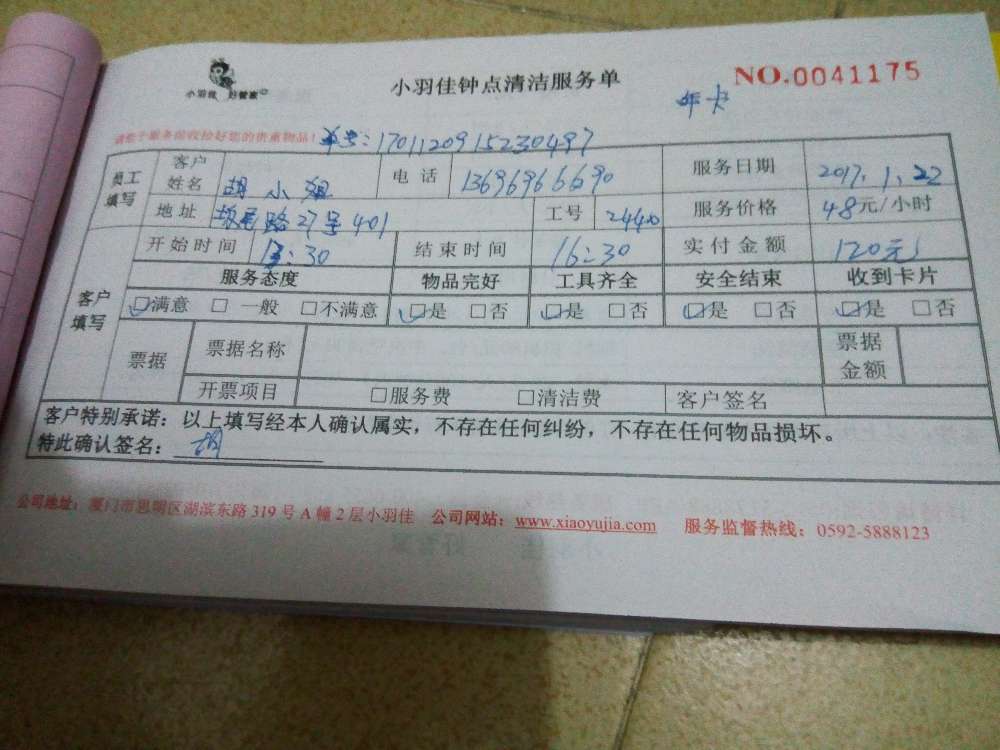 小羽佳 好管家
小羽佳钟点清洁服务单
NO.0041175
年卡
请您于服务前收拾好您的贵重物品!
单号:1701120915230497
员工填写 客户姓名 胡小姐 电话 13696966690 服务日期 2017.1.22
地址 坂尾路27号401 工号 2440 服务价格 48元/小时
开始时间 13:30 结束时间 16:30 实付金额 120元
客户填写 服务态度 物品完好 工具齐全 安全结束 收到卡片
☑满意 □一般 □不满意 ☑是 □否 ☑是 □否 ☑是 □否 ☑是 □否
票据 票据名称 票据金额
开票项目 □服务费 □清洁费 客户签名
客户特别承诺:以上填写经本人确认属实,不存在任何纠纷,不存在任何物品损坏。
特此确认签名:胡
公司地址:厦门市思明区湖滨东路 319 号 A 幢 2 层小羽佳 公司网站:www.xiaoyujia.com 服务监督热线:0592-5888123